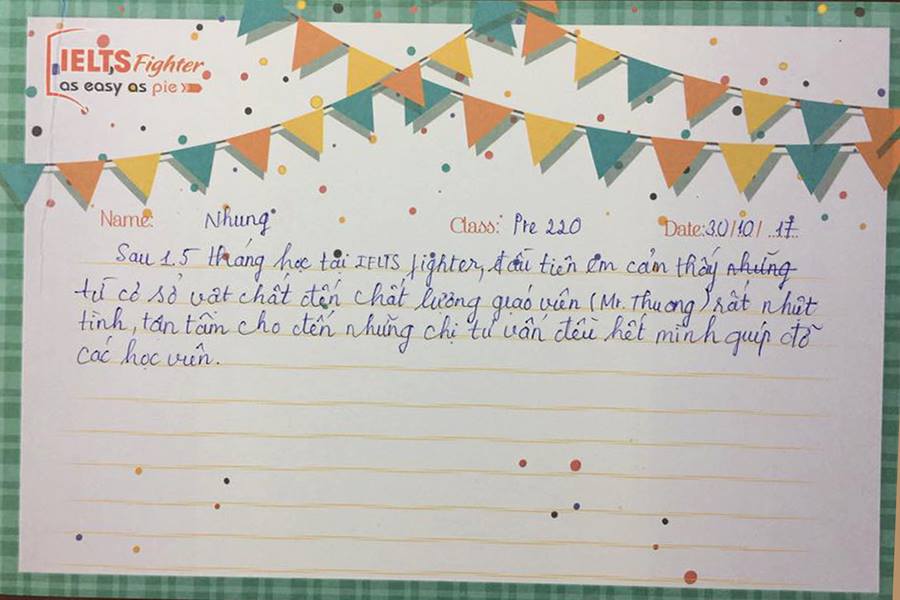 IELTS Fighter
as easy as pie
Name: Nhung Class: Pre 220 Date: 30/10/ ..17..
Sau 1.5 tháng học tại IELTS fighter, đầu tiên em cảm thấy những
từ cơ sở vật chất đến chất lượng giáo viên (Mr. Thương) rất nhiệt
tình, tận tâm cho đến những chị tư vấn đều hết mình giúp đỡ
các học viên.